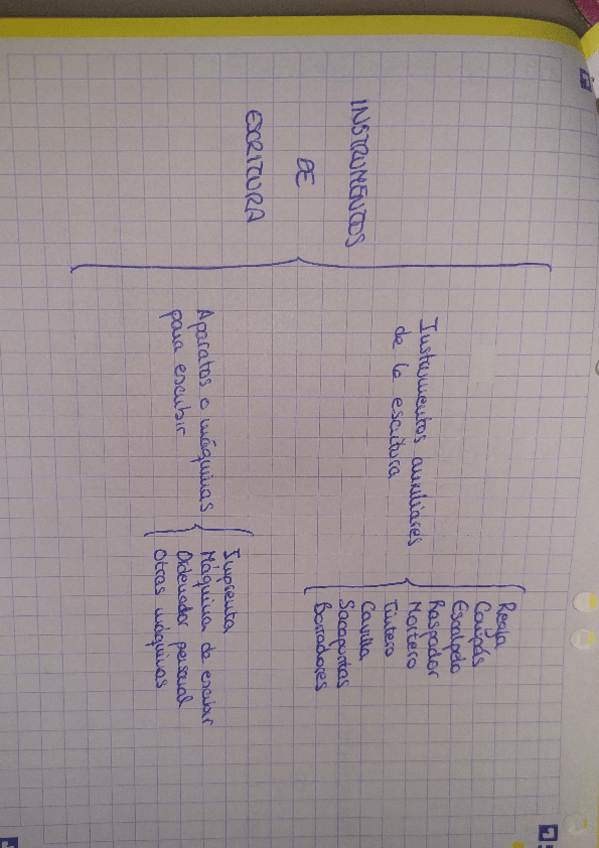 INSTRUMENTOS
DE
ESCRITURA
Instrumentos auxiliares
de la escritura
Regla
Compás
Escalpelo
Raspador
Mortero
Tintero
Cavilla
Sacapuntas
Borradores
Aparatos o máquinas
para escribir
Imprenta
Máquina de escribir
Ordenador personal
Otras máquinas